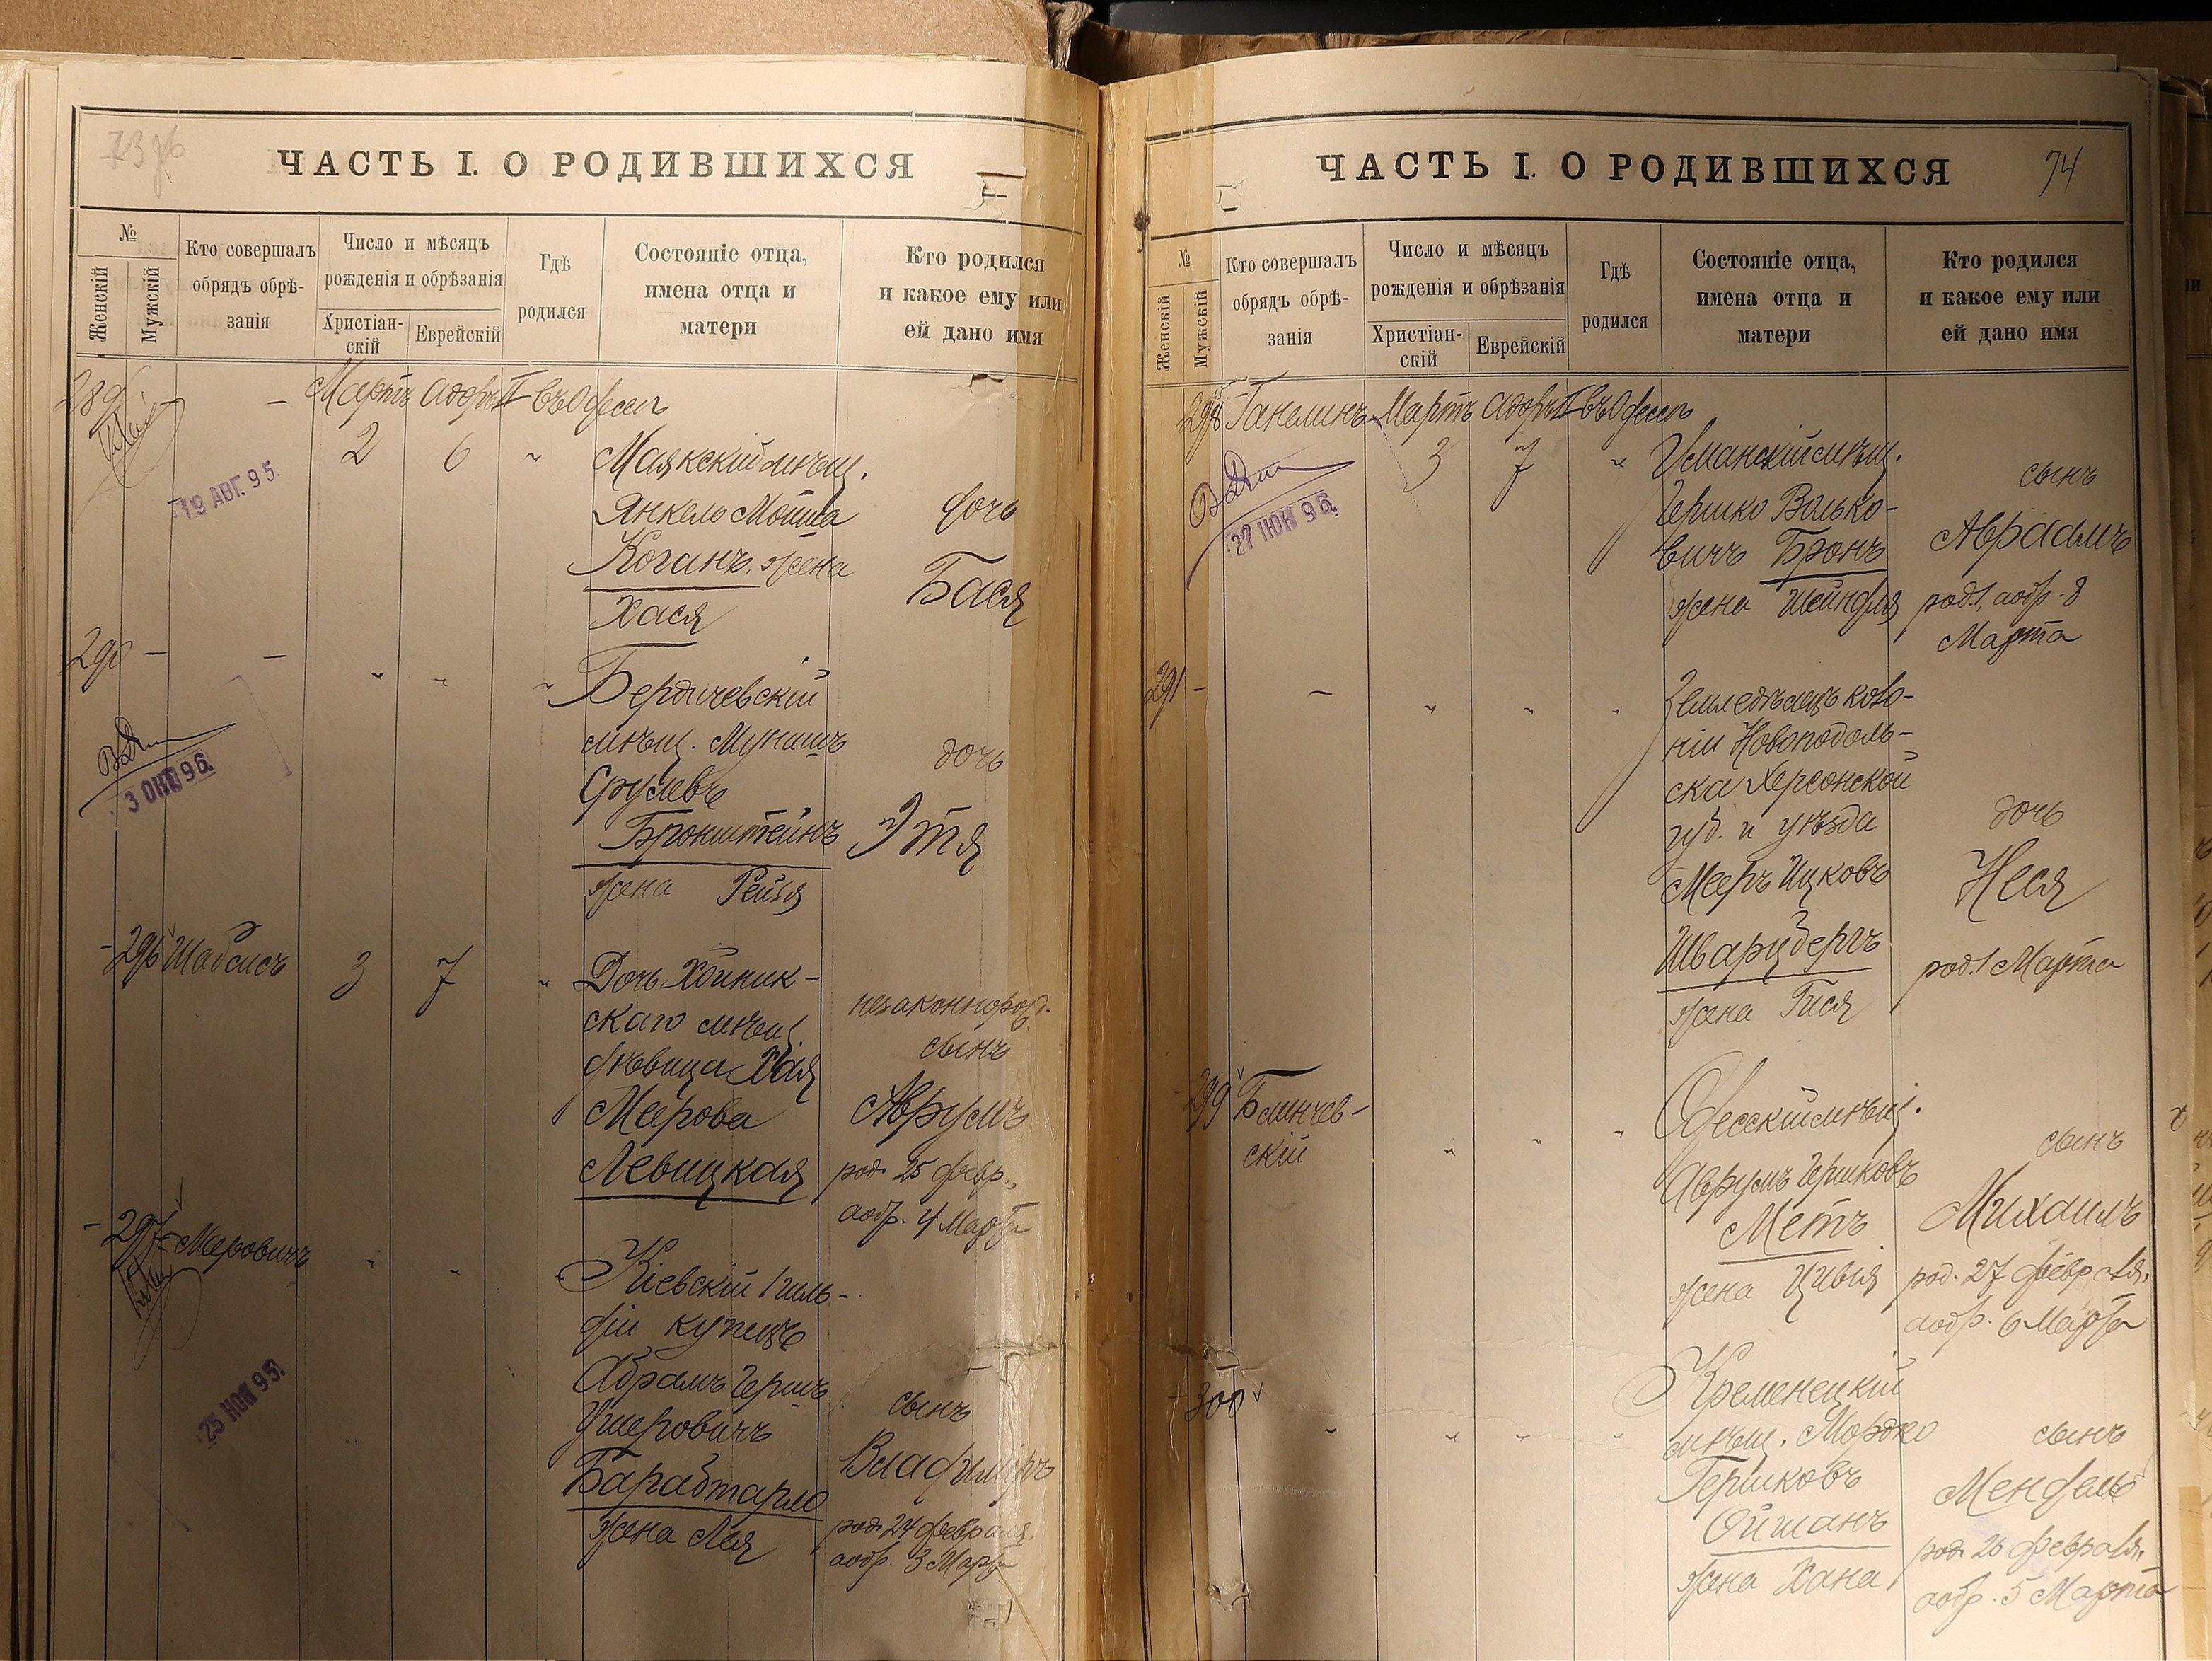 73 об
ЧАСТЬ I. О РОДИВШИХСЯ
№
Женскій
Мужскій
Кто совершалъ
обрядъ обрѣ-
занія
Число и мѣсяцъ
рожденія и обрѣзанія
Христіан-
скій
Еврейскій
Гдѣ
родился
Состояніе отца,
имена отца и
матери
Кто родился
и какое ему или
ей дано имя
289 — Мартъ Адоръ II въ Одессѣ
2 6 " Маякскій мѣщ.
19 АВГ. 95.
Янкель Мойша дочь
Коганъ, жена Бася
Хася
290 — — " " " Бердичевскій
мѣщ. Мунишъ дочь
3 ОКТ 96.
Срулевъ
Бронштейнъ Этя
жена Рейзя
- 296 Шабсисъ 3 7 " Дочь Хойник-
скаго мѣщ. незаконнорожд.
дѣвица Хая сынъ
Меерова Аврумъ
Левицкая род. 25 февр.,
аобр. 4 Марта
- 297 Меровичъ " " Кіевскій 1 гиль-
діи купецъ
25 НОЯ 95.
Абрамъ Гершъ сынъ
Ушеровичъ Владиміръ
Барабтарло род. 24 февраля,
жена Лея аобр. 3 Марта
74
ЧАСТЬ I. О РОДИВШИХСЯ
№
Женскій
Мужскій
Кто совершалъ
обрядъ обрѣ-
занія
Число и мѣсяцъ
рожденія и обрѣзанія
Христіан-
скій
Еврейскій
Гдѣ
родился
Состояніе отца,
имена отца и
матери
Кто родился
и какое ему или
ей дано имя
298 Ганелинъ Мартъ Адоръ II въ Одессѣ
3 7 " Уманскій мѣщ. сынъ
27 96.
Гершко Волько-
вичъ Бронъ Авраамъ
жена Шейндля род. 1, аобр. 8
Марта
291 — — " " " Земледѣлецъ коло-
ніи Новоподоль-
ска Херсонской
губ. и уѣзда дочь
Мееръ Ицковъ Неся
Шварцбергъ род. 1 Марта
жена Гися
- 299 Блинчев-
скій " " " Одесскій мѣщ. сынъ
Аврумъ Гершковъ
Метъ Михаилъ
жена Цивья род. 27 февраля,
аобр. 6 Марта
- 300 " " " " Кременецкій
мѣщ. Мордко сынъ
Гершковъ Мендель
Ойшанъ род. 26 февраля,
жена Хана аобр. 5 Марта